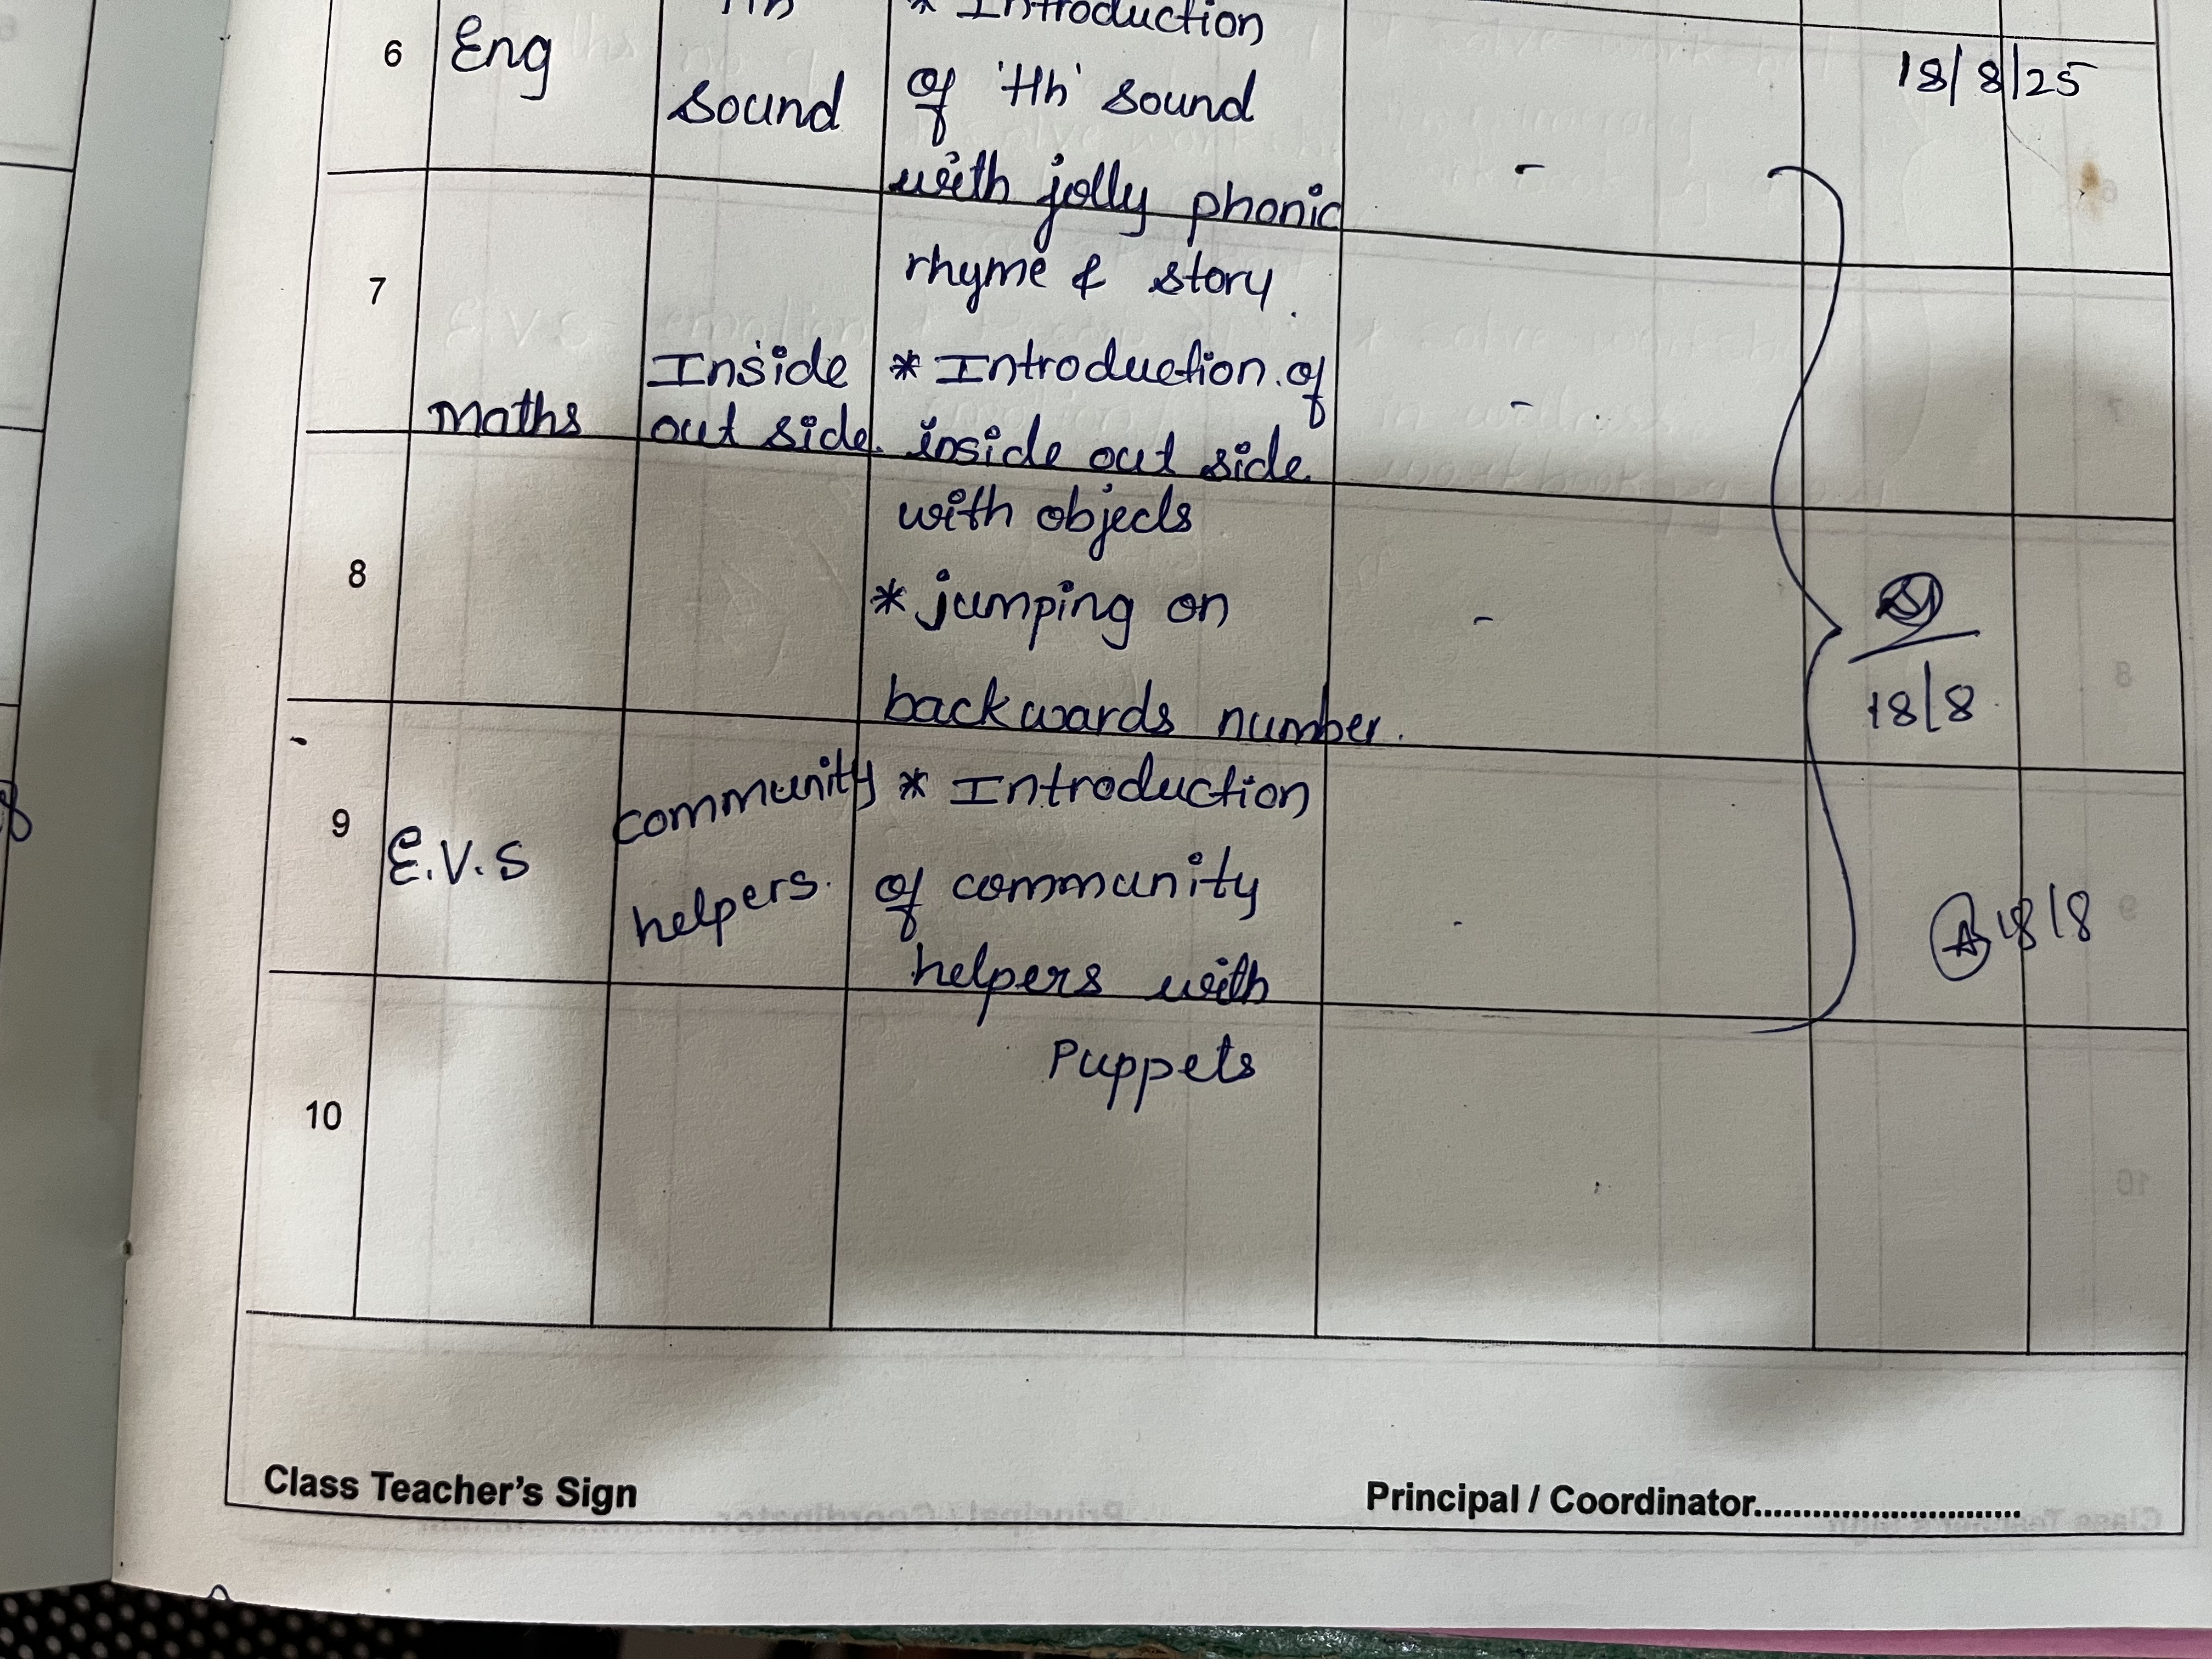 * Introduction
6 Eng sound of 'Hh' sound 18/8/25
with jolly phonic -
7 rhyme & story.
Inside * Introduction of -
Maths out side. inside out side
with objects
8 * jumping on -
backwards number. 18/8
community * Introduction
9 E.V.S helpers. of community - 18/8
helpers with
Puppets
10
Class Teacher's Sign Principal / Coordinator...........................